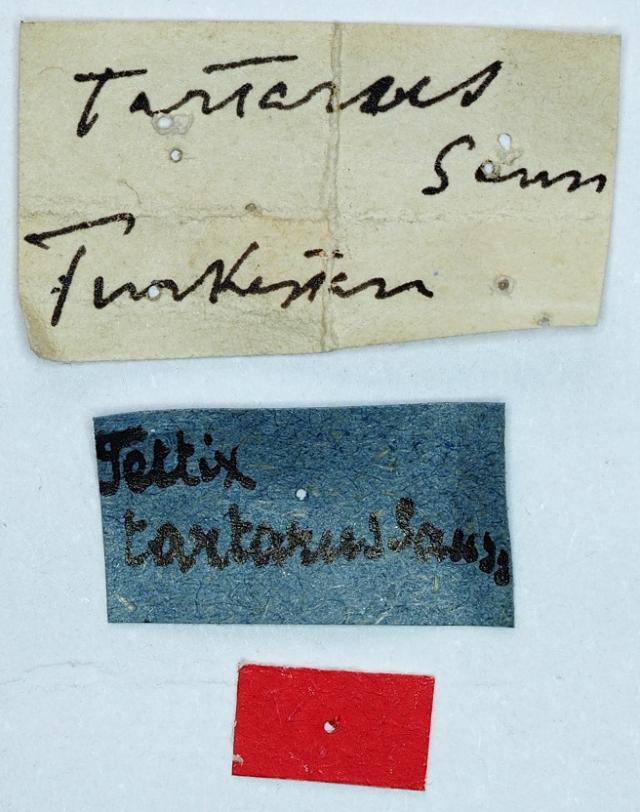 tartarus
Sauss
Turkestan
Tettix
tartarus Sauss